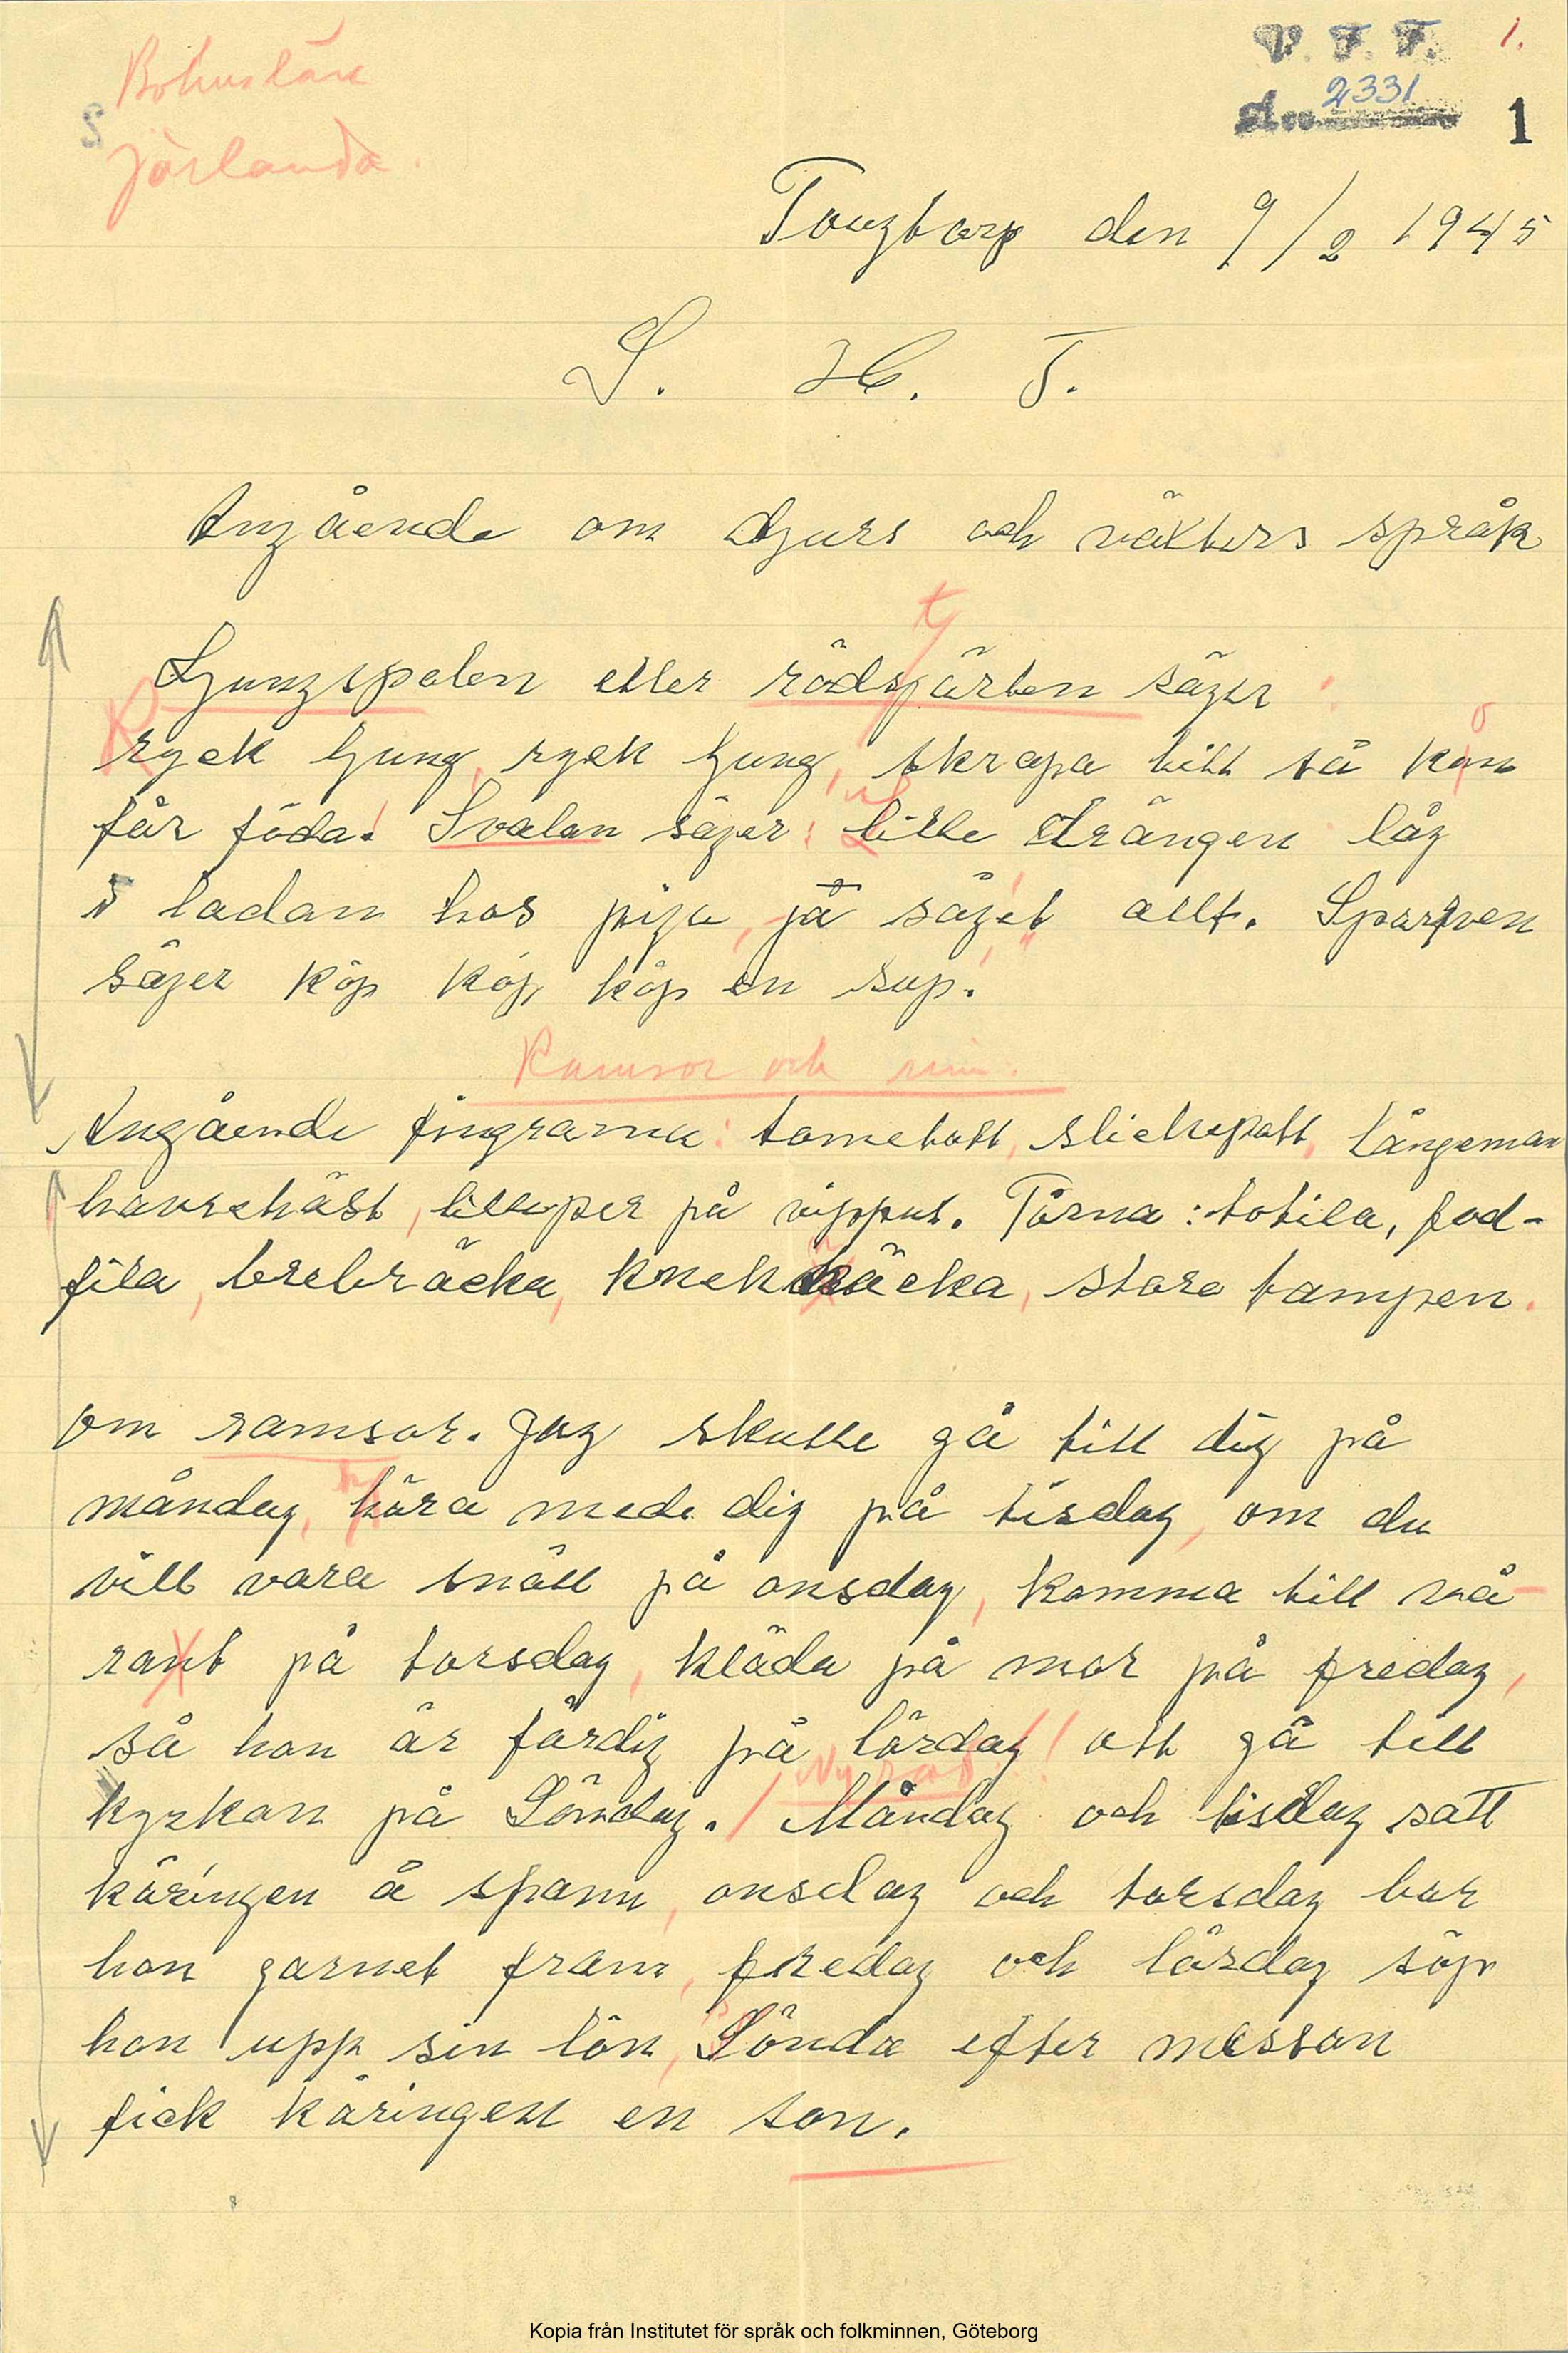 Bohuslän
S Jörlanda
V. F. F. 1.
Acc. 2331 1
Tougtorp den 9/2 1945
L. H. T.
Angående om djurs och växters språk
Ljungspolen eller rödsjärten säger
t
ryck ljung, ryck ljung, skrapa litt så kon
får föda! Svalan säger: lille drängen låg
i ladan hos piga, jå såg'et allt. Sparven
säger köp köp köp en sup!
Ramsor och rim.
Angående fingrarna: tometott, slickepott, långeman
havrehäst, lilleper på vipput. Tårna: totila, fod-
fila, brebräcka, knekträcka, store tampen.
om ramsor. Jag skulle gå till dig på
måndag, höra mede dig på tisdag, om du
vill vara snäll på onsdag, komma till vå-
rant på torsdag, kläda på mor på fredag,
så hon är färdig på lördag! att gå till
Ny rad!
kyrkan på Söndag. / Måndag och tisdag satt
käringen å spann, onsdag och torsdag bar
hon garnet fram, fredag och lördag söp
hon upp sin lön, Sönda efter messan
fick käringen en son.
Kopia från Institutet för språk och folkminnen, Göteborg